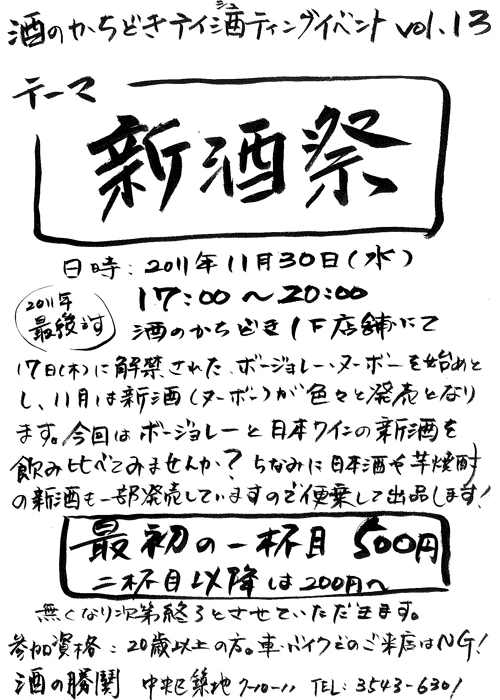 酒のかちどきテイ酒ティングイベント vol.13
シュ
テーマ
新酒祭
日時：2011年11月30日(水)
17:00～20:00
2011年
最後です
酒のかちどき1F店舗にて
17日(木)に解禁された、ボージョレー・ヌーボーを始めと
し、11月は新酒(ヌーボー)が色々と発売となり
ます。今回はボージョレーと日本ワインの新酒を
飲み比べてみませんか？ちなみに日本酒や芋焼酎
の新酒も一部発売していますので便乗して出品します！
最初の一杯目 500円
二杯目以降は200円へ
無くなり次第終了とさせていただきます。
参加資格：20歳以上の方。車・バイクでのご来店はNG！
酒の勝鬨 中央区築地7-10-11 TEL：3543-6301